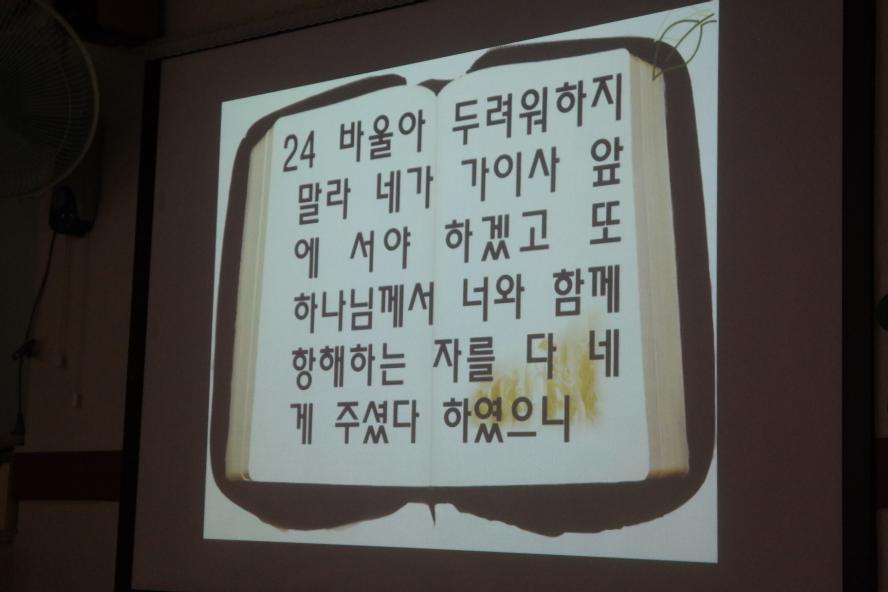 24 바울아 두려워하지
말라 네가 가이사 앞
에 서야 하겠고 또
하나님께서 너와 함께
항해하는 자를 다 네
게 주셨다 하였으니